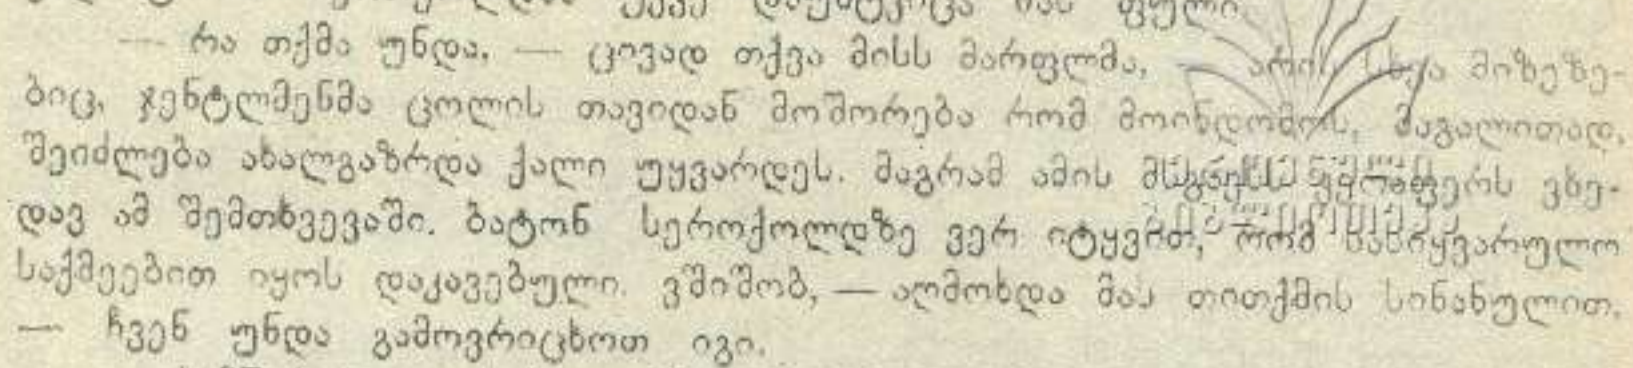 — რა თქმა უნდა, — ცივად თქვა მისს მარფლმა, — არის სხვა მიზეზე-
ბიც, ჯენტლმენმა ცოლის თავიდან მოშორება რომ მოინდომოს, მაგალითად,
შეიძლება ახალგაზრდა ქალი უყვარდეს. მაგრამ ამის მსგავსს ვერაფერს ვხე-
დავ ამ შემთხვევაში. ბატონ სეროქოლდზე ვერ იტყვით, რომ სასიყვარულო
საქმეებით იყოს დაკავებული. ვშიშობ, — აღმოხდა მას თითქმის სინანულით,
— ჩვენ უნდა გამოვრიცხოთ იგი.